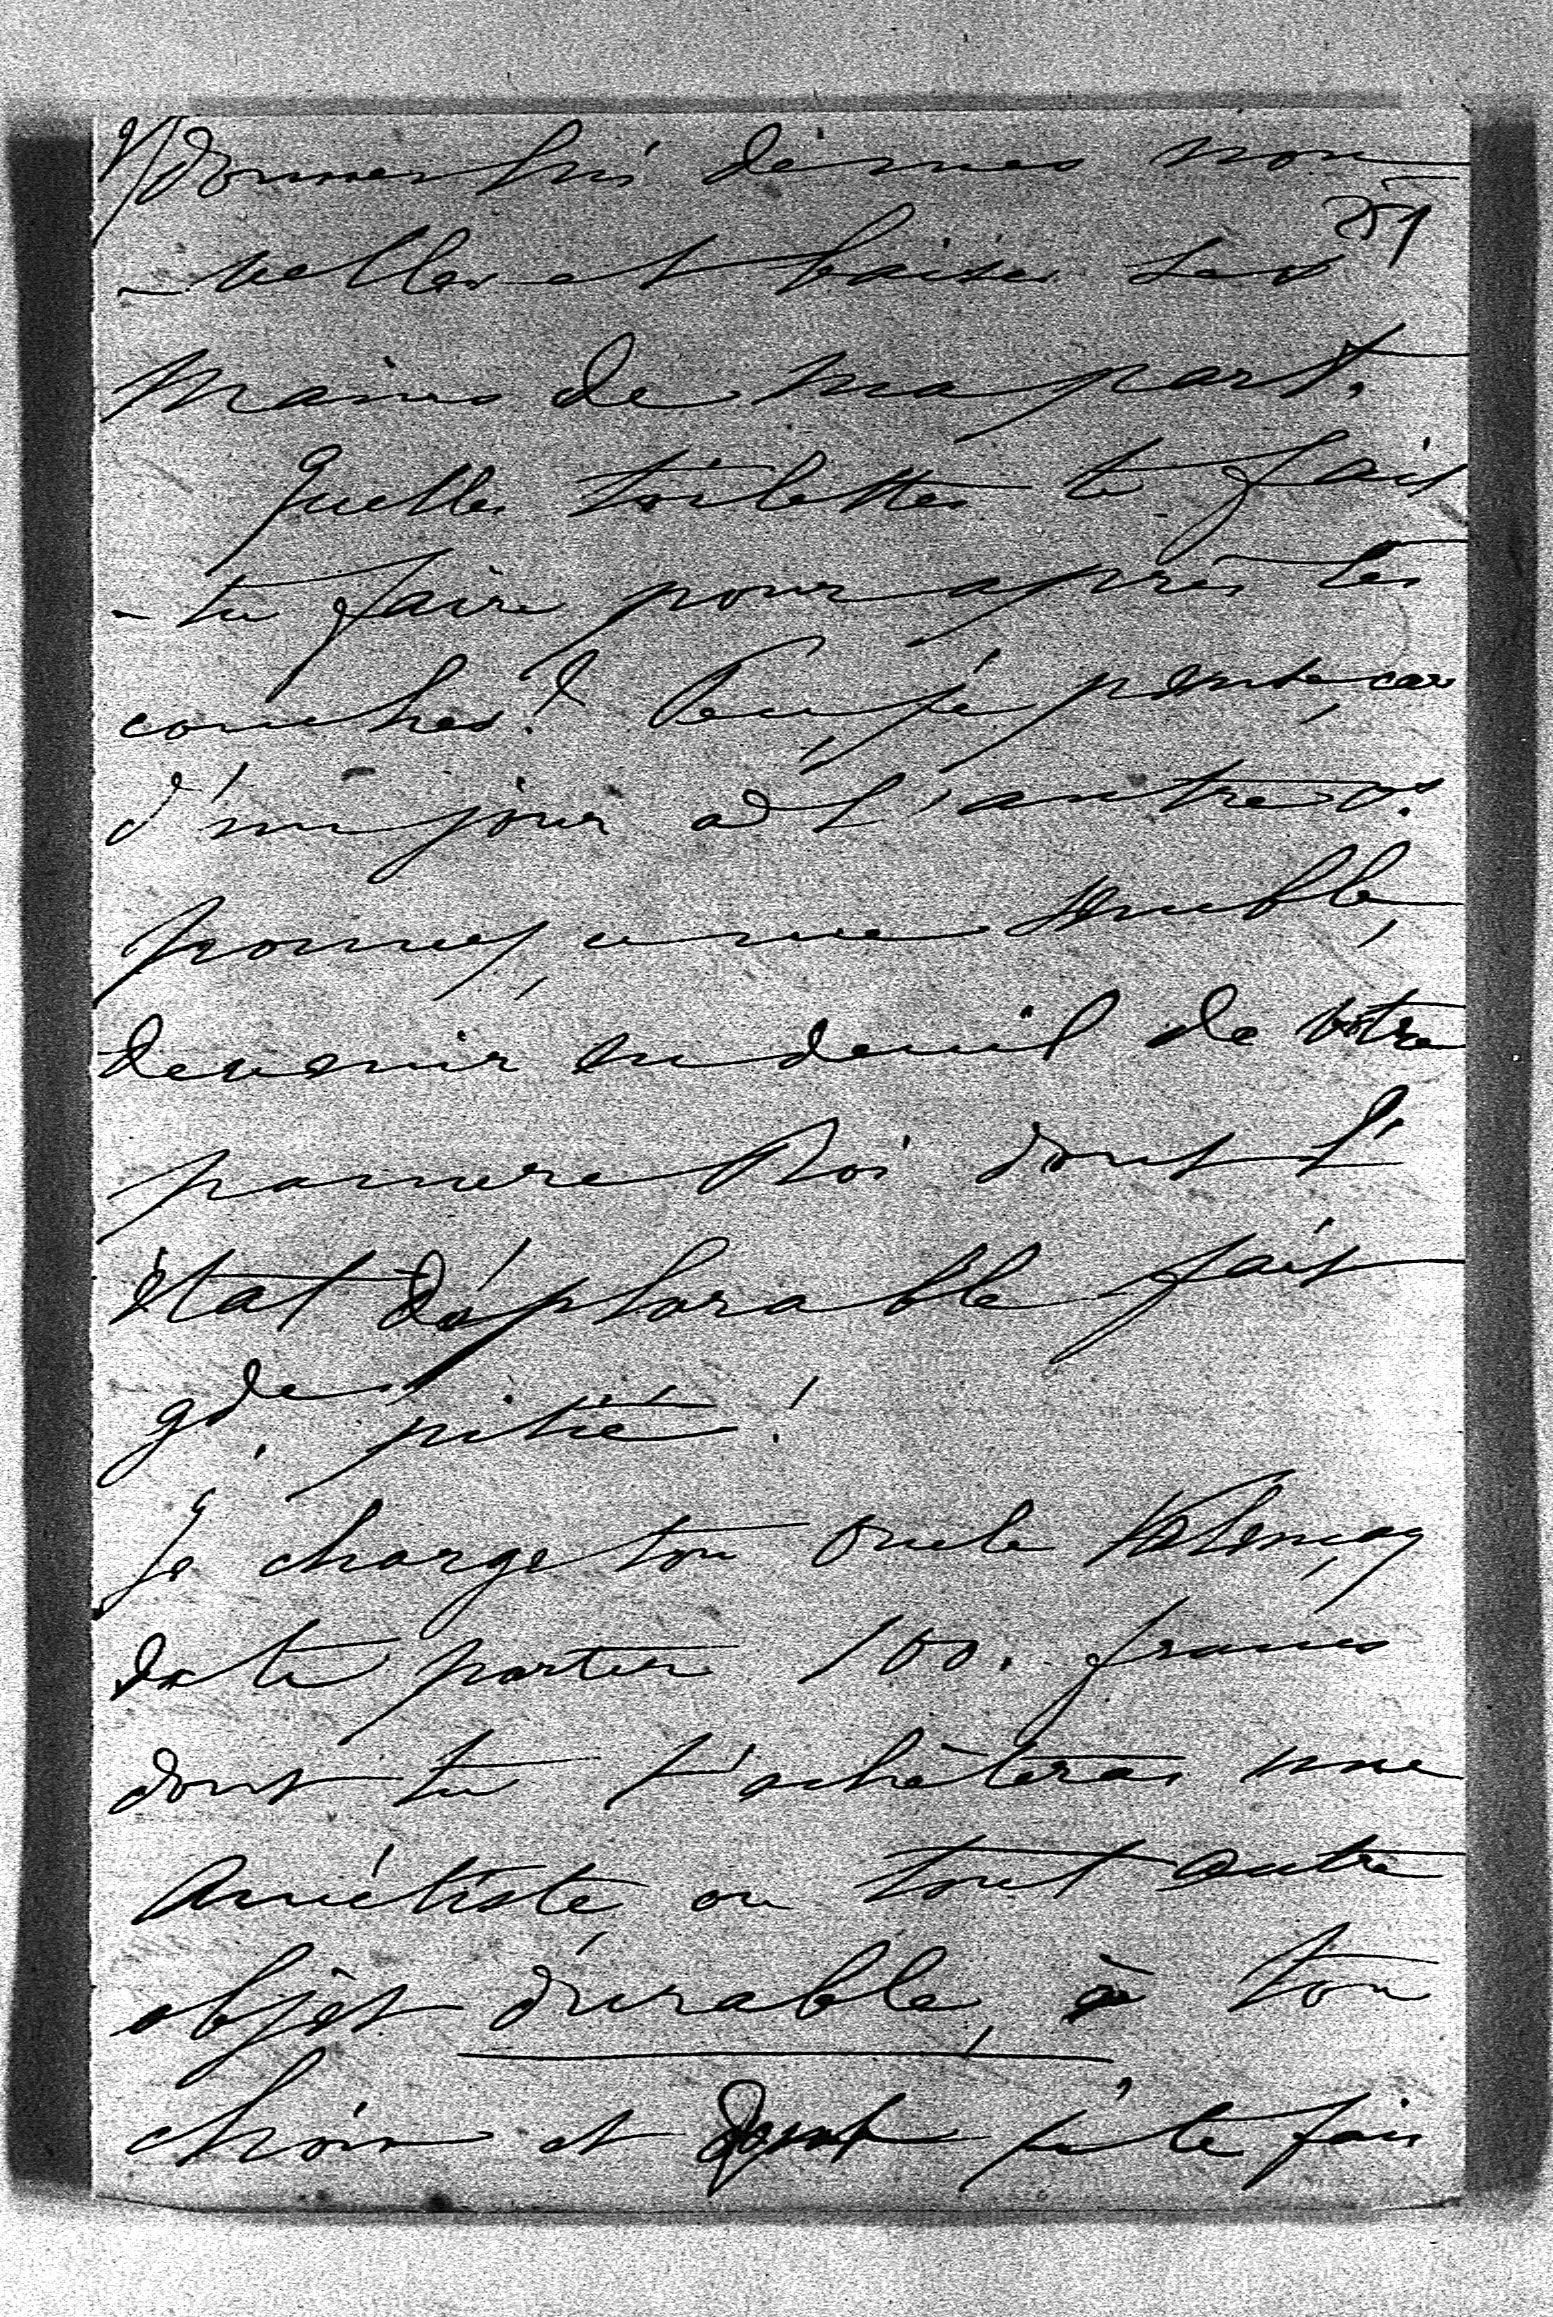 9/ donner lui de mes nou
251
-velles et baiser ses
mains de ma part.
Quelles toilettes te fais
-tu faire pour après tes
couches? Penses-y, car
d'un jour à l'autre vs.
pouvez, ce me semble,
devenir en deuil de votre
pauvre Roi dont l'
état déplorable fait
gde. pitié!
Je charge ton oncle Valençay
de te porter 100. francs
dont tu t'achèteras une
améthiste ou tout autre
objet durable, à ton
choix et dont je te fais